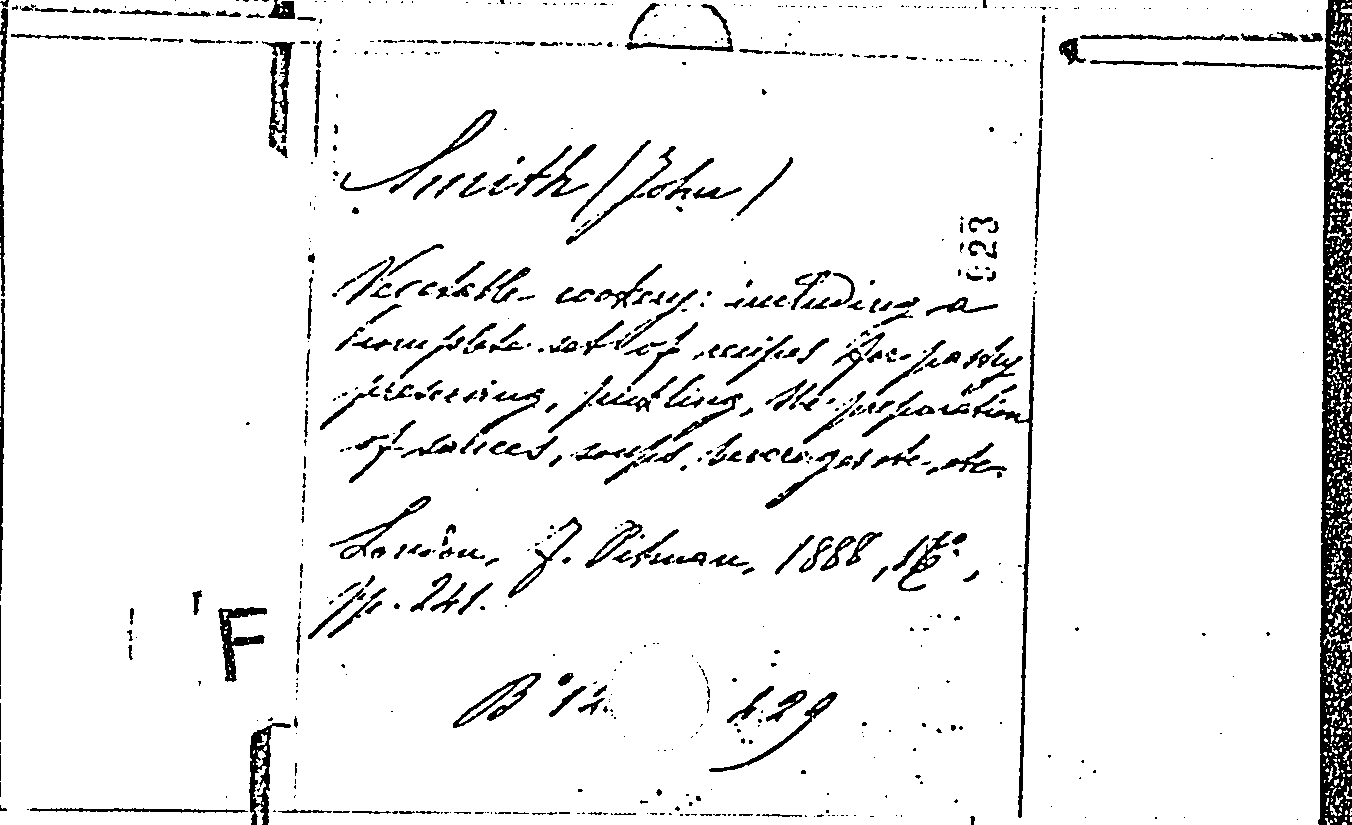 Smith (John)
023
Vegetable cookery: including a
complete set of recipes for pastry
preserving, pickling, the preparation
of sauces, soups, beverages etc. etc.
London, F. Pitman, 1888, 16°,
pp. 241.
B° 12 429
F